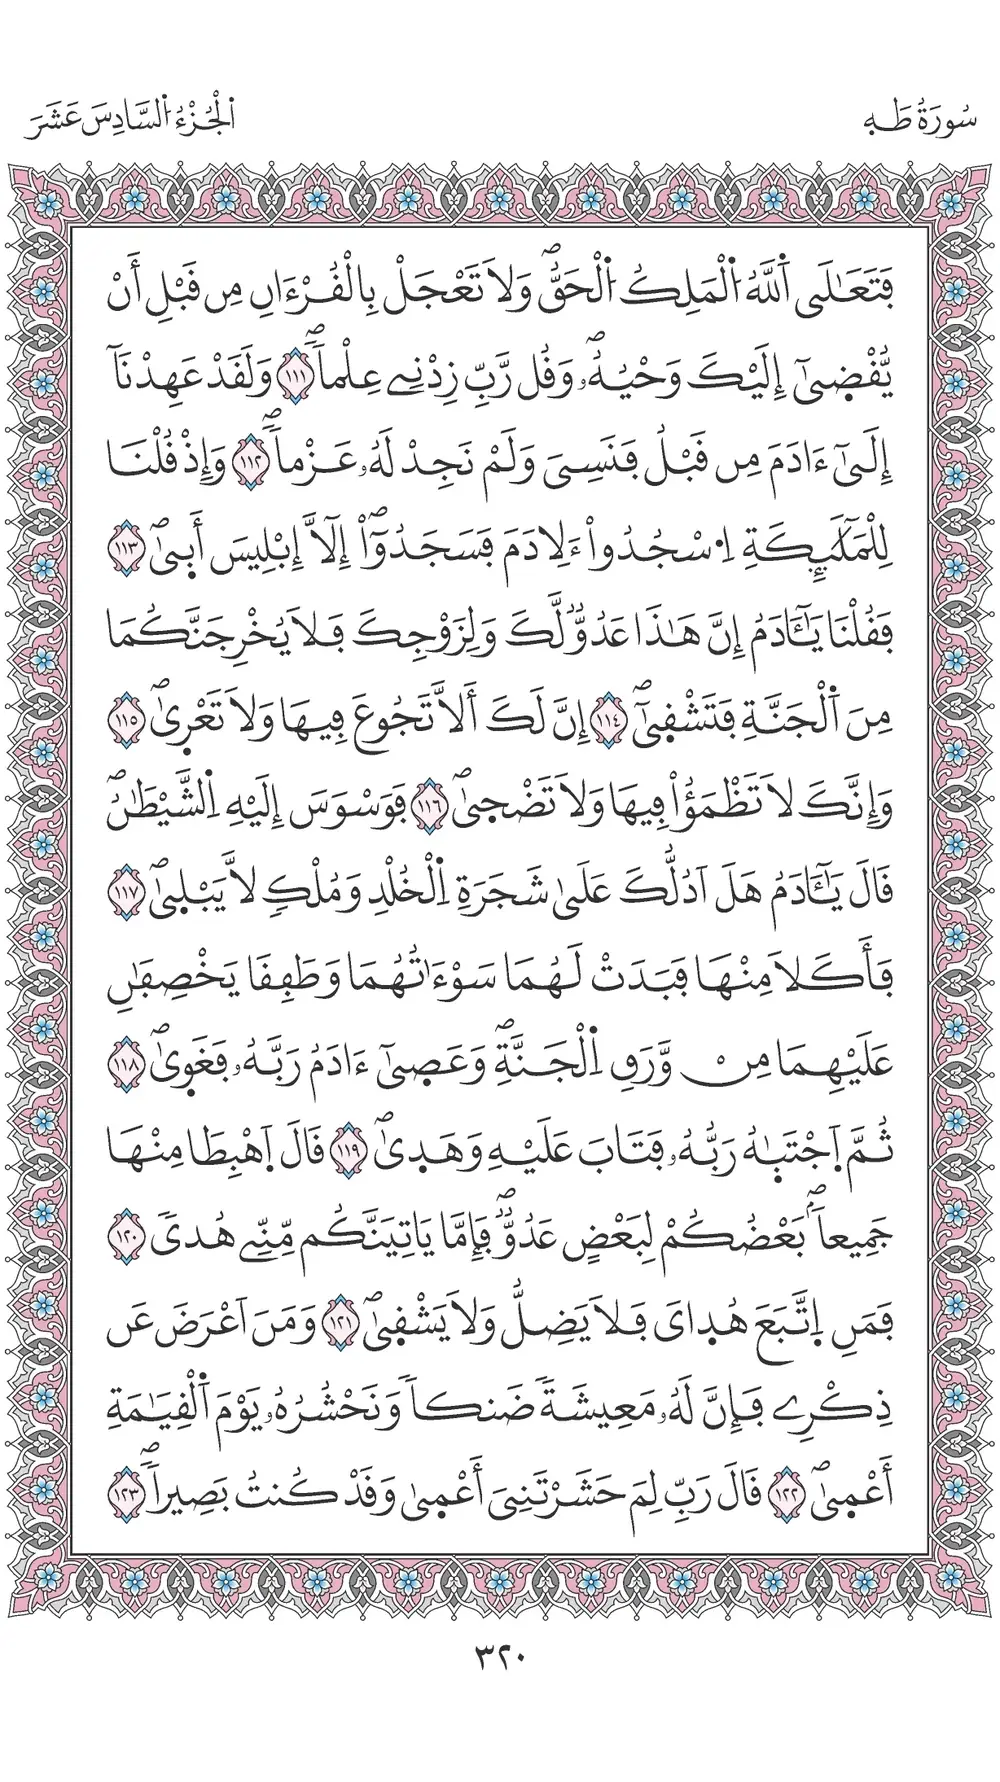 سُورَةُ طَهِ
اَ۬لْجُزْءُ اُ۬لسَّادِسَ عَشَرَ
فَتَعَٰلَى اَ۬للَّهُ اُ۬لْمَلِكُ اُ۬لْحَقُّۖ وَلَا تَعْجَلْ بِالْقُرْءَانِ مِن قَبْلِ أَنْ
يُّقْضِىٰٓ إِلَيْكَ وَحْيُهُۥۖ وَقُل رَّبِّ زِدْنِے عِلْماٗۖ ١١١ وَلَقَدْ عَهِدْنَآ
إِلَىٰٓ ءَادَمَ مِن قَبْلُ فَنَسِىَ وَلَمْ نَجِدْ لَهُۥ عَزْماٗۖ ١١٢ وَإِذْ قُلْنَا
لِلْمَلَٰٓئِكَةِ اِ۟سْجُدُواْ ءِلَادَمَ فَسَجَدُوٓاْۖ إِلَّآ إِبْلِيسَ أَب۪ىٰۖ ١١٣
فَقُلْنَا يَٰٓـَٔادَمُ إِنَّ هَٰذَا عَدُوّٞ لَّكَ وَلِزَوْجِكَ فَلَا يُخْرِجَنَّكُمَا
مِنَ اَ۬لْجَنَّةِ فَتَشْق۪ىٰٓۖ ١١٤ إِنَّ لَكَ أَلَّا تَجُوعَ فِيهَا وَلَا تَعْر۪ىٰۖ ١١٥
وَإِنَّكَ لَا تَظْمَؤُاْ فِيهَا وَلَا تَضْح۪ىٰۖ ١١٦ فَوَسْوَسَ إِلَيْهِ اِ۬لشَّيْطَٰنُۖ
قَالَ يَٰٓـَٔادَمُ هَلَ اَدُلُّكَ عَلَىٰ شَجَرَةِ اِ۬لْخُلْدِ وَمُلْكٖ لَّا يَبْل۪ىٰۖ ١١٧
فَأَكَلَا مِنْهَا فَبَدَتْ لَهُمَا سَوْءَٰتُهُمَا وَطَفِقَا يَخْصِفَٰنِ
عَلَيْهِمَا مِنْ وَّرَقِ اِ۬لْجَنَّةِۖ وَعَص۪ىٰٓ ءَادَمُ رَبَّهُۥ فَغَو۪ىٰۖ ١١٨
ثُمَّ اَ۪جْتَبَٰهُ رَبُّهُۥ فَتَابَ عَلَيْهِ وَهَد۪ىٰۖ ١١٩ قَالَ اَ۪هْبِطَا مِنْهَا
جَمِيعاَۢۖ بَعْضُكُمْ لِبَعْضٍ عَدُوّٞۖ فَإِمَّا يَاتِيَنَّكُم مِّنِّے هُدىٗ ١٢٠
فَمَنِ اِ۪تَّبَعَ هُد۪اىَ فَلَا يَضِلُّ وَلَا يَشْق۪ىٰۖ ١٢١ وَمَنَ اَعْرَضَ عَن
ذِكْرِے فَإِنَّ لَهُۥ مَعِيشَةٗ ضَنكاٗ وَنَحْشُرُهُۥ يَوْمَ اَ۬لْقِيَٰمَةِ
أَعْم۪ىٰۖ ١٢٢ قَالَ رَبِّ لِمَ حَشَرْتَنِىَ أَعْم۪ىٰ وَقَدْ كُنتُ بَصِيراٗۖ ١٢٣
٣٢٠